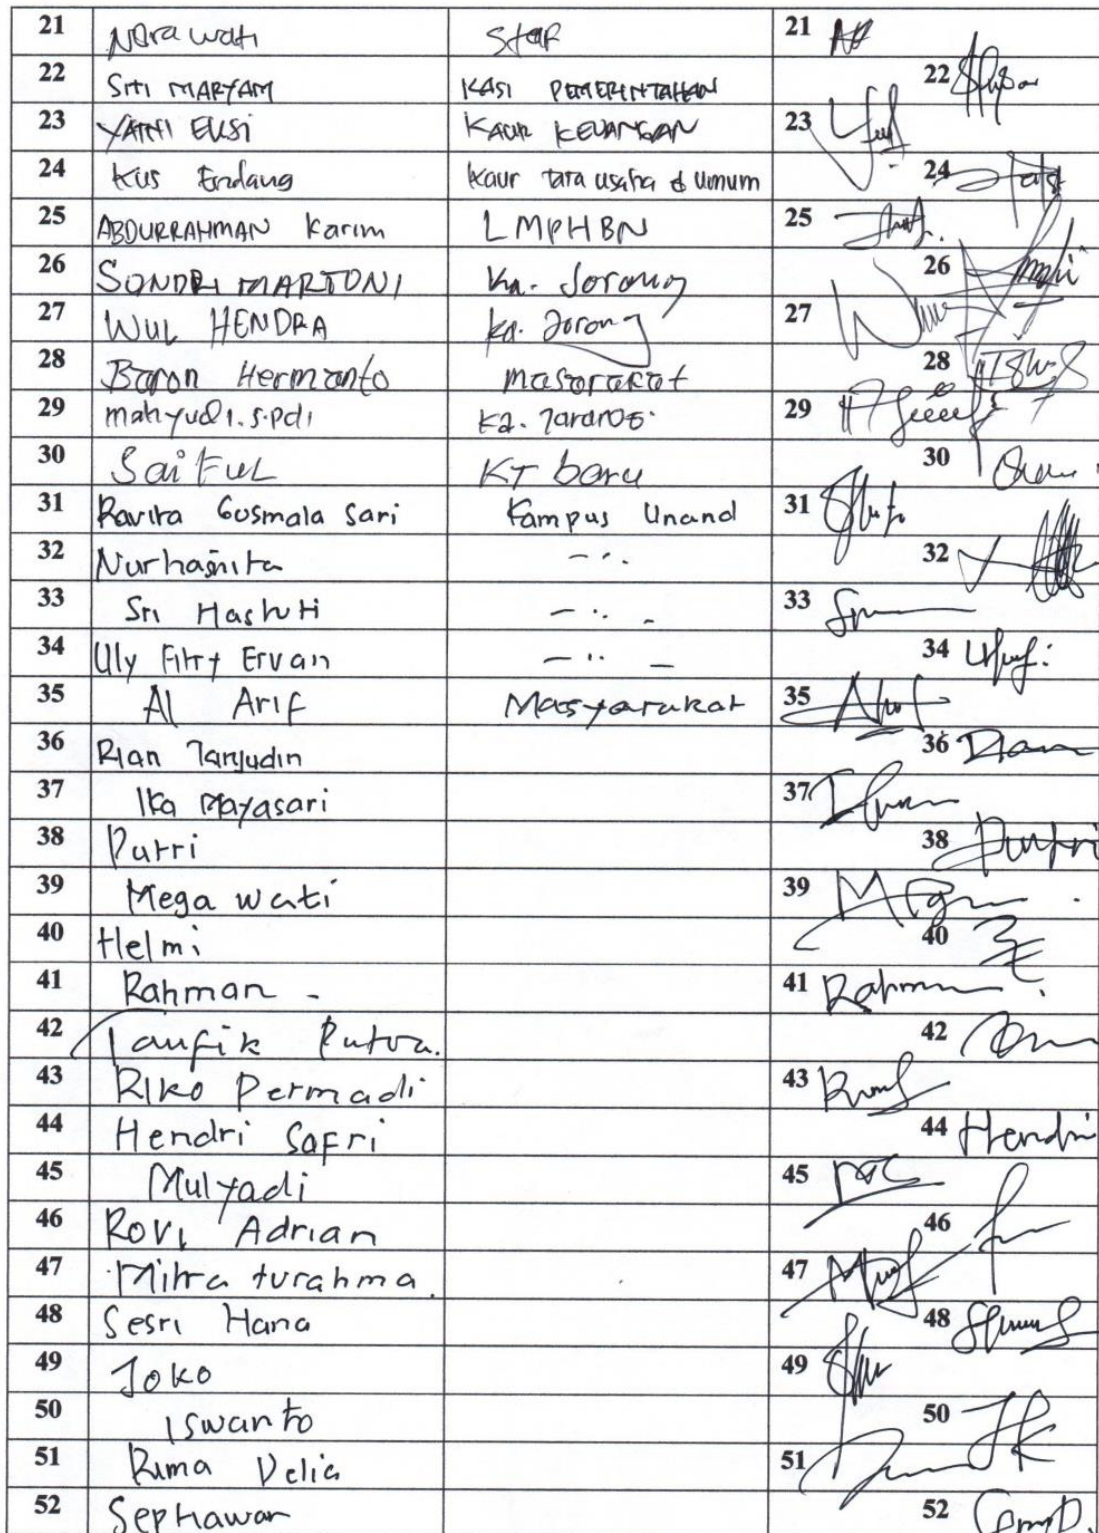 21 Nora wati Staf 21
22 SITI MARYAM KASI PEMERINTAHAN 22
23 YATNI EKSI KAUR KEUANGAN 23
24 Kus Endang Kaur tata usaha & umum 24
25 ABDURRAHMAN Karim LMPHBN 25
26 SONDRI MARTONI Ka. Jorong 26
27 WUL HENDRA Ka. Jorong 27
28 Baron Hermanto masarakat 28
29 mahyudi.s.pdi Ka. 29
30 SaiFuL KT baru 30
31 Ravita Gusmala Sari Kampus Unand 31
32 Nurhasnita -·· 32
33 Sri Hastuti -·· - 33
34 Uly Fitry Ervan -·· - 34
35 Al Arif Masyarakat 35
36 Rian Tanjudin 36
37 Ika Mayasari 37
38 Putri 38 Putri
39 Mega wati 39
40 Helmi 40
41 Rahman - 41
42 Taufik Putra. 42
43 Riko Permadi 43
44 Hendri Safri 44 Hendri
45 Mulyadi 45
46 Rovi Adrian 46
47 Mitra turahma. 47
48 Sesri Hana 48
49 Joko 49
50 Iswanto 50
51 Rima Delia 51
52 Septiawan 52